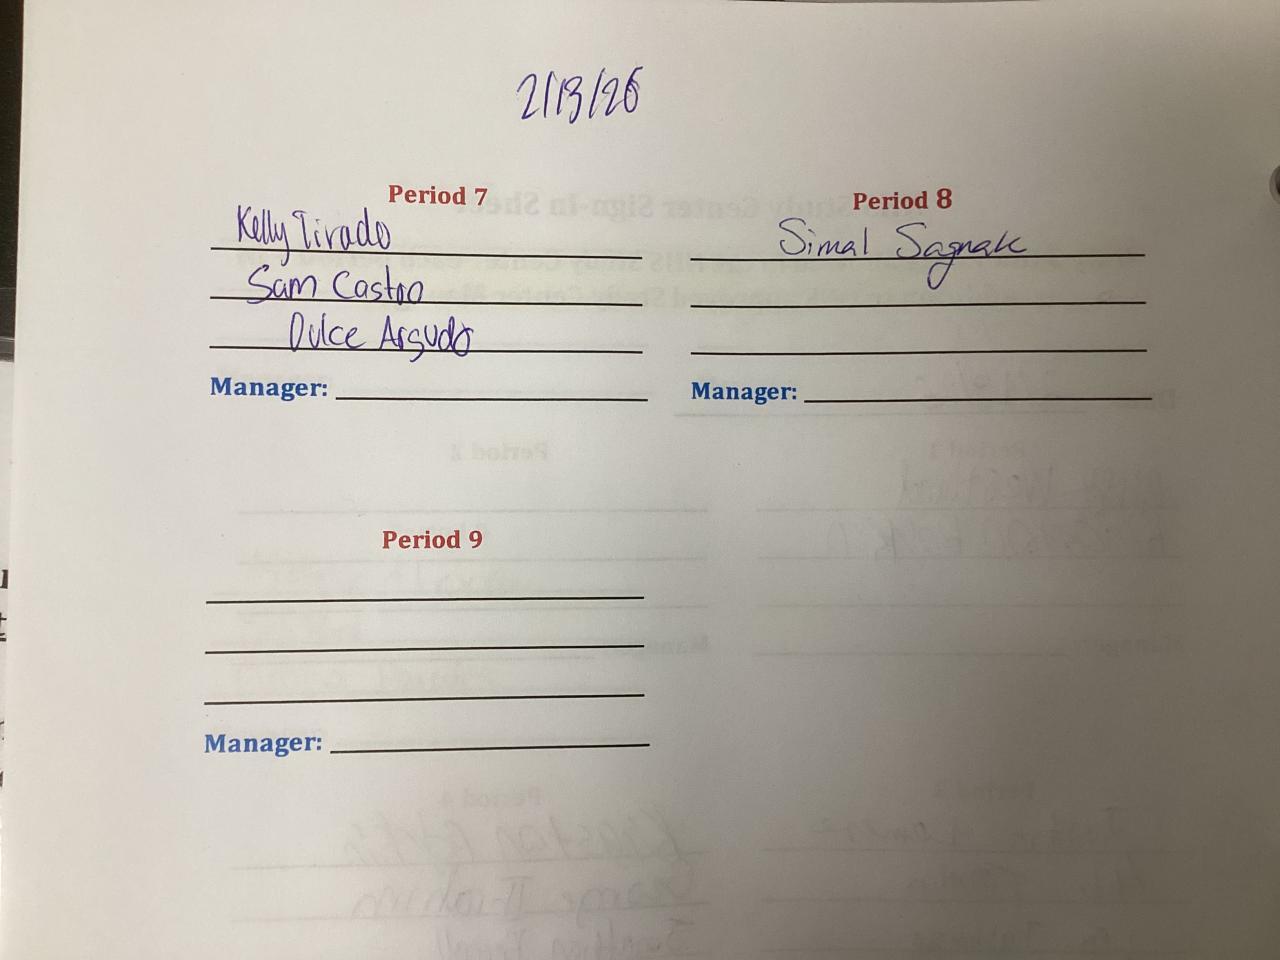 2/13/26
Period 7
Kelly Tirado
Sam Castro
Dulce Argudo
Manager:
Period 8
Simal Sagnak
Manager:
Period 9
Manager: